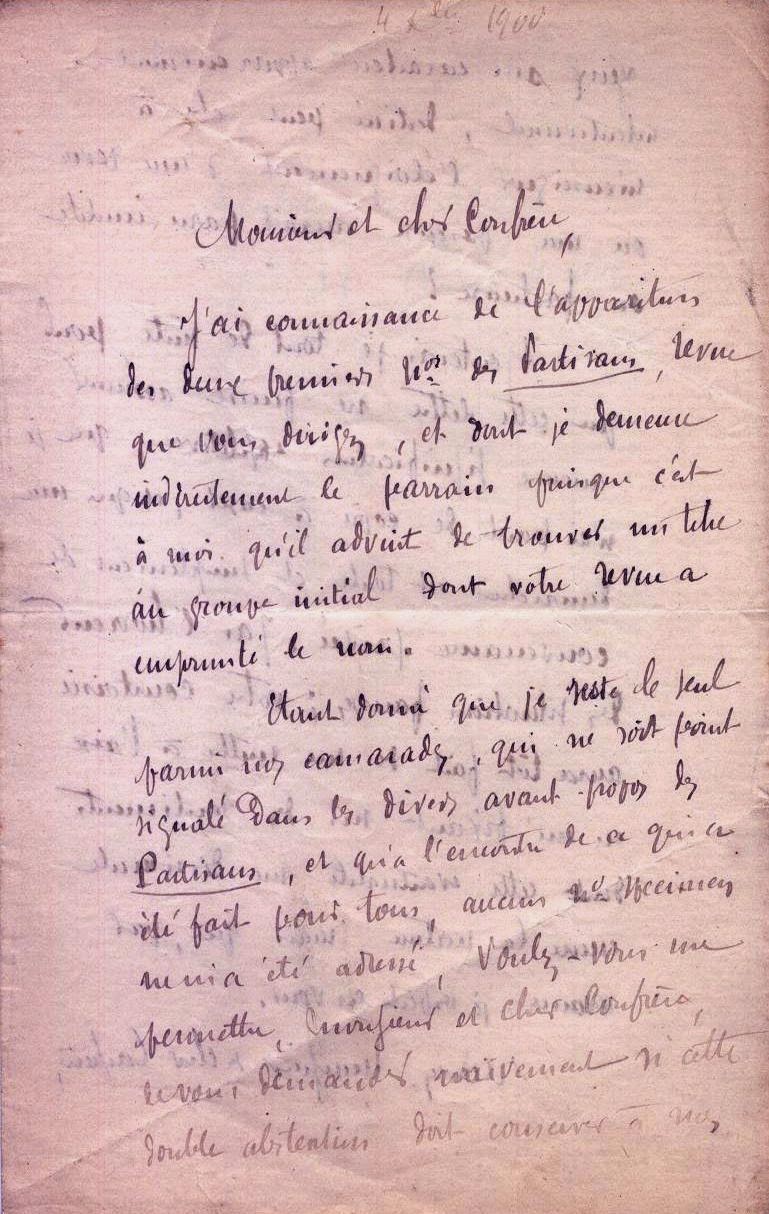 4 Xbre 1900
Monsieur et cher Confrère,
J'ai connaissance de l'apparition
des deux premiers Nos des Partisans, revue
que vous dirigez, et dont je demeure
indirectement le parrain puisque c'est
à moi qu'il advint de trouver un titre
au groupe initial dont votre revue a
emprunté le nom.
Etant donné que je reste le seul
parmi mes camarades, qui ne soit point
signalé dans les divers avant-propos des
Partisans, et qu'à l'encontre de ce qui a
été fait pour tous, aucun no specimen
ne m'a été adressé, Voulez-vous me
permettre, monsieur et cher Confrère,
de vous demander naïvement si cette
double abstention doit conserver à mes